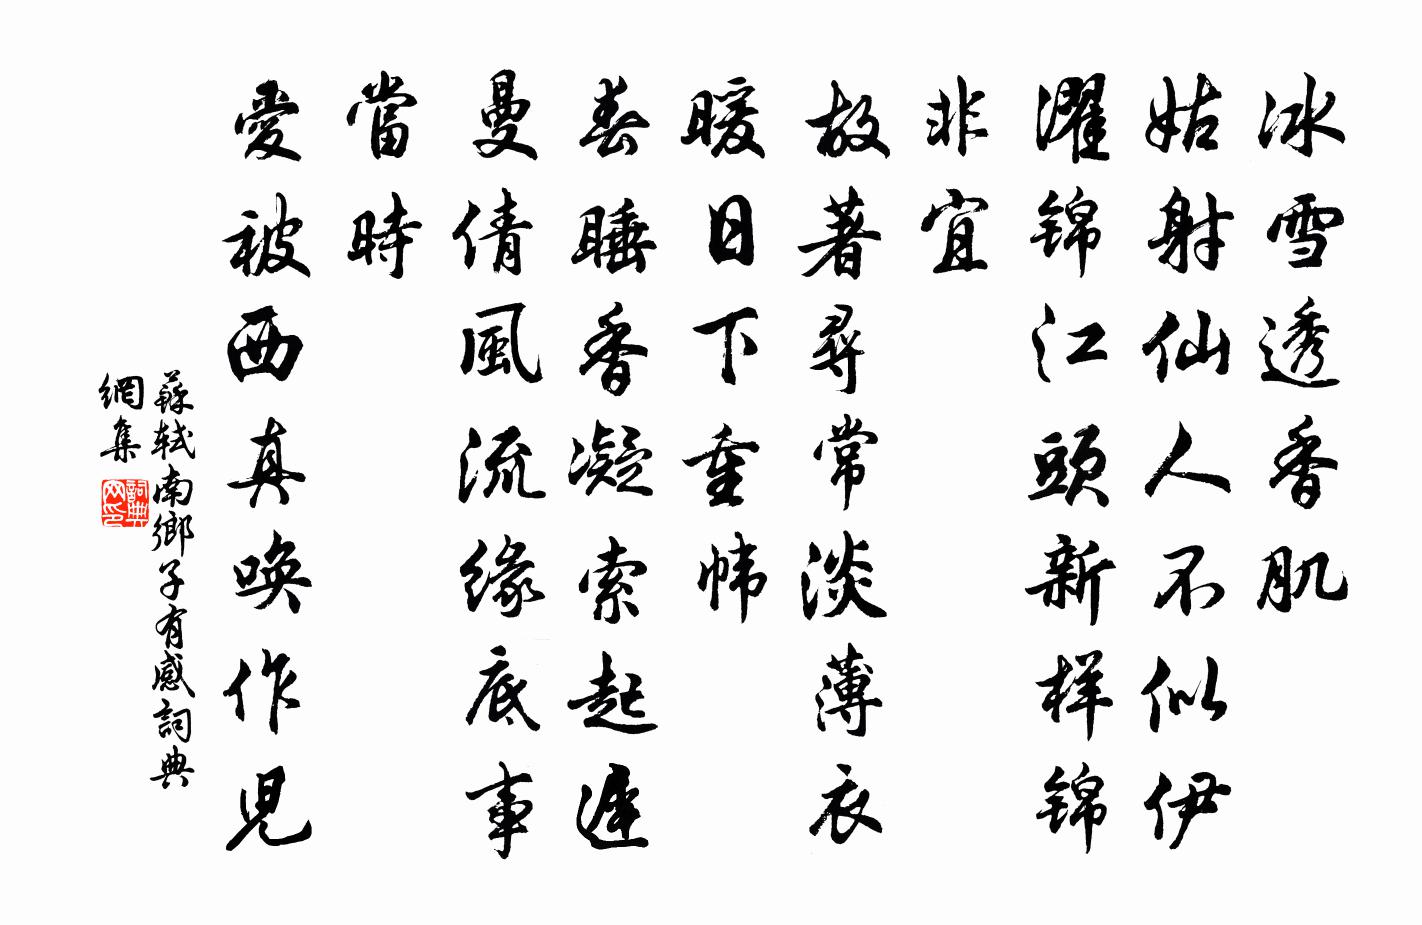 冰雪透香肌
姑射仙人不似伊
濯锦江頭新样锦
非宜
故著尋常淡薄衣
暖日下重帏
春睡香凝索起遲
曼倩風流缘底事
當時
愛被西真唤作兒
蘇軾南鄉子有感詞典
網集
詞典
网印